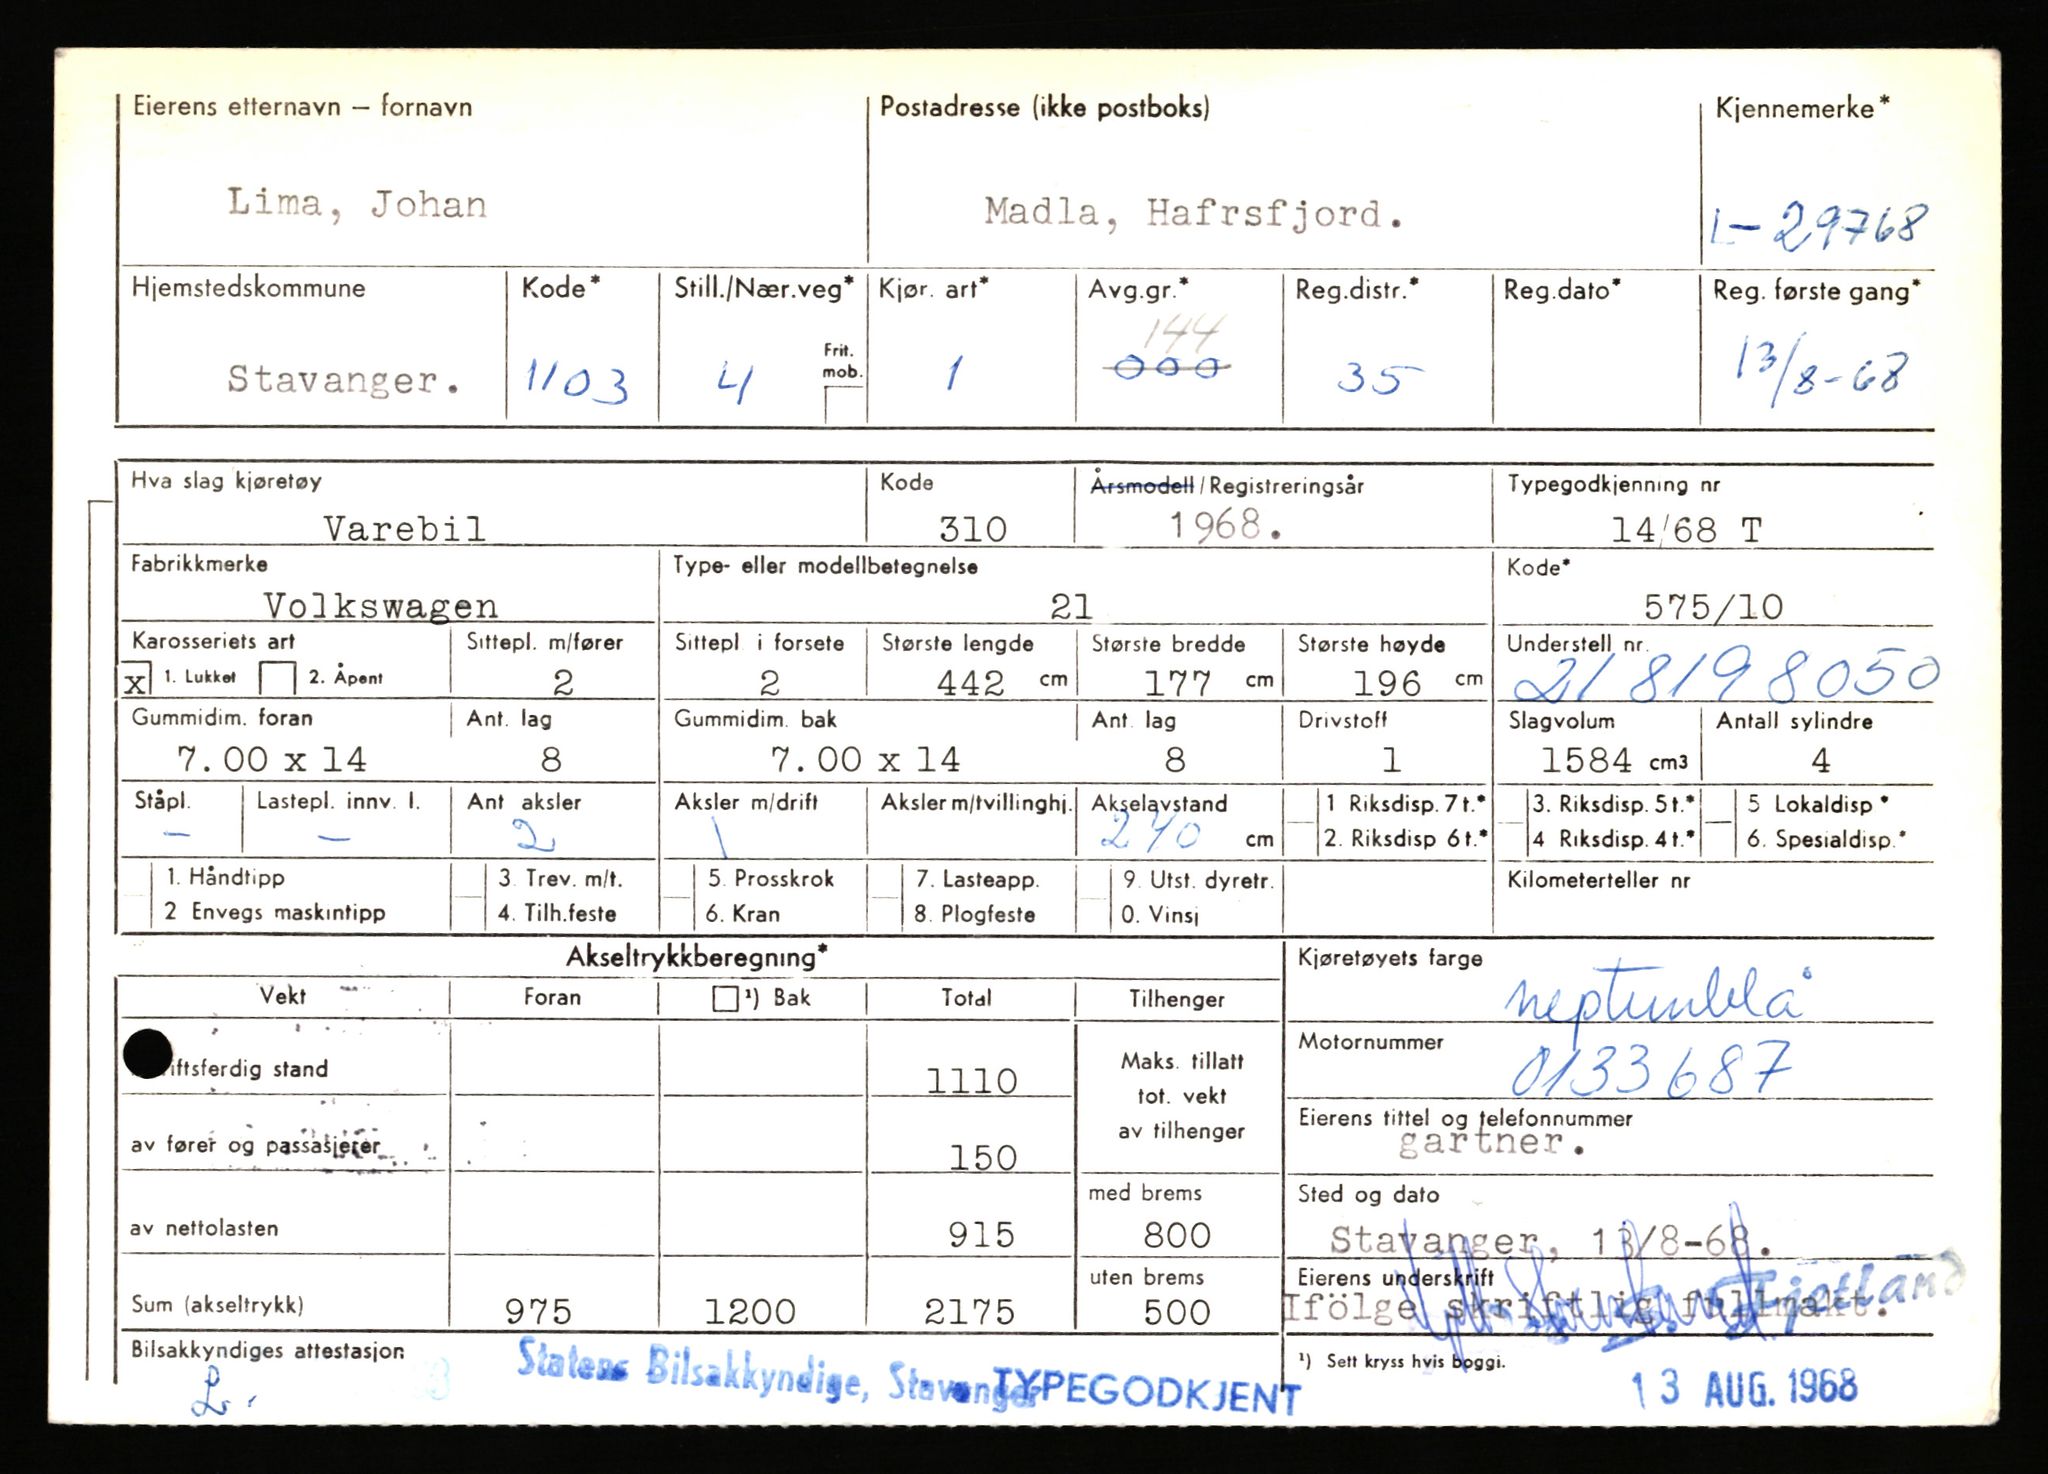 Eierens etternavn – fornavn
Postadresse (ikke postboks)
Kjennemerke*
Lima, Johan
Madla, Hafrsfjord.
L-29768
Hjemstedskommune
Kode*
Still./Nær.veg*
Kjør. art*
Avg.gr.*
Reg.distr.*
Reg.dato*
Reg. første gang*
Stavanger.
1103
4
Frit. mob.
1
144
000
35
13/8-68
Hva slag kjøretøy
Kode
Årsmodell/Registreringsår
Typegodkjenning nr
Varebil
310
1968.
14/68 T
Fabrikkmerke
Type- eller modellbetegnelse
Kode*
Volkswagen
21
575/10
Karosseriets art
Sittepl. m/fører
Sittepl i forsete
Største lengde
Største bredde
Største høyde
Understell nr.
x 1. Lukket 2. Åpent
2
2
442 cm
177 cm
196 cm
218198050
Gummidim. foran
Ant. lag
Gummidim. bak
Ant. lag
Drivstoff
Slagvolum
Antall sylindre
7.00 x 14
8
7.00 x 14
8
1
1584 cm3
4
Ståpl.
Lastepl. innv. l.
Ant aksler
Aksler m/drift
Aksler m/tvillinghj.
Akselavstand
1 Riksdisp. 7 t.*
3. Riksdisp. 5 t.*
5 Lokaldisp*
–
–
2
1
240 cm
2. Riksdisp 6 t.*
4 Riksdisp. 4 t.*
6. Spesialdisp.*
1. Håndtipp
3. Trev. m/t.
5. Prosskrok
7. Lasteapp.
9. Utst. dyretr.
Kilometerteller nr
2 Envegs maskintipp
4. Tilh.feste
6. Kran
8. Plogfeste
0. Vinsj
Akseltrykkberegning*
Kjøretøyets farge
neptunblå
Vekt
Foran
¹) Bak
Total
Tilhenger
Motornummer
0133687
iftsferdig stand
1110
Maks. tillatt
tot. vekt
av tilhenger
Eierens tittel og telefonnummer
gartner.
av fører og passasjerer
150
med brems
Sted og dato
av nettolasten
915
800
Stavanger, 13/8-68.
uten brems
Eierens underskrift
Sum (akseltrykk)
975
1200
2175
500
Ifölge skriftlig fullmakt.
Fjetland
Bilsakkyndiges attestasjon
¹) Sett kryss hvis boggi.
Statens Bilsakkyndige, Stavanger
TYPEGODKJENT
13 AUG. 1968